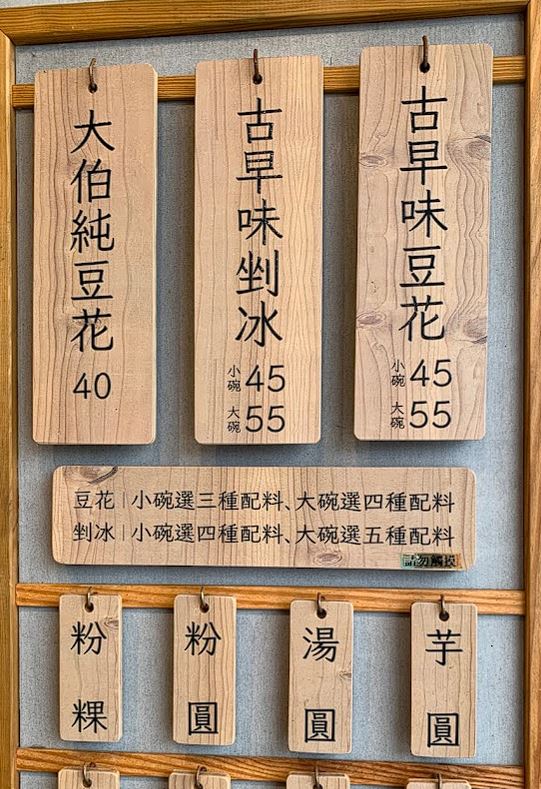 古早味豆花
小碗 45
大碗 55
古早味剉冰
小碗 45
大碗 55
大伯純豆花
40
豆花|小碗選三種配料、大碗選四種配料
剉冰|小碗選四種配料、大碗選五種配料
請勿觸摸
粉粿
粉圓
湯圓
芋圓